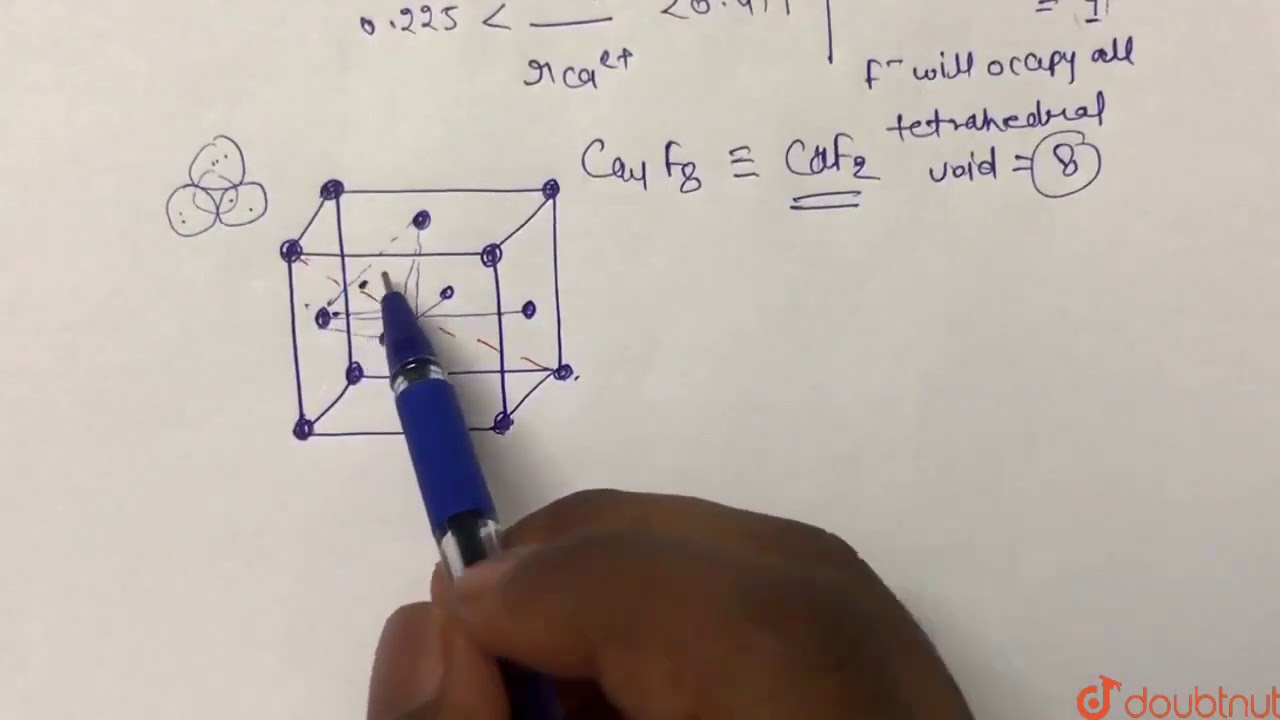 0.225 < ——— <0.4
r Ca²⁺
= 1
F⁻ will occupy all
tetrahedral
void = 8
Ca₄F₈ ≡ CaF₂
doubtnut